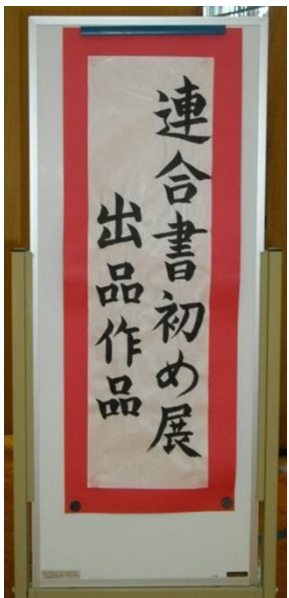 連合書初め展
出品作品